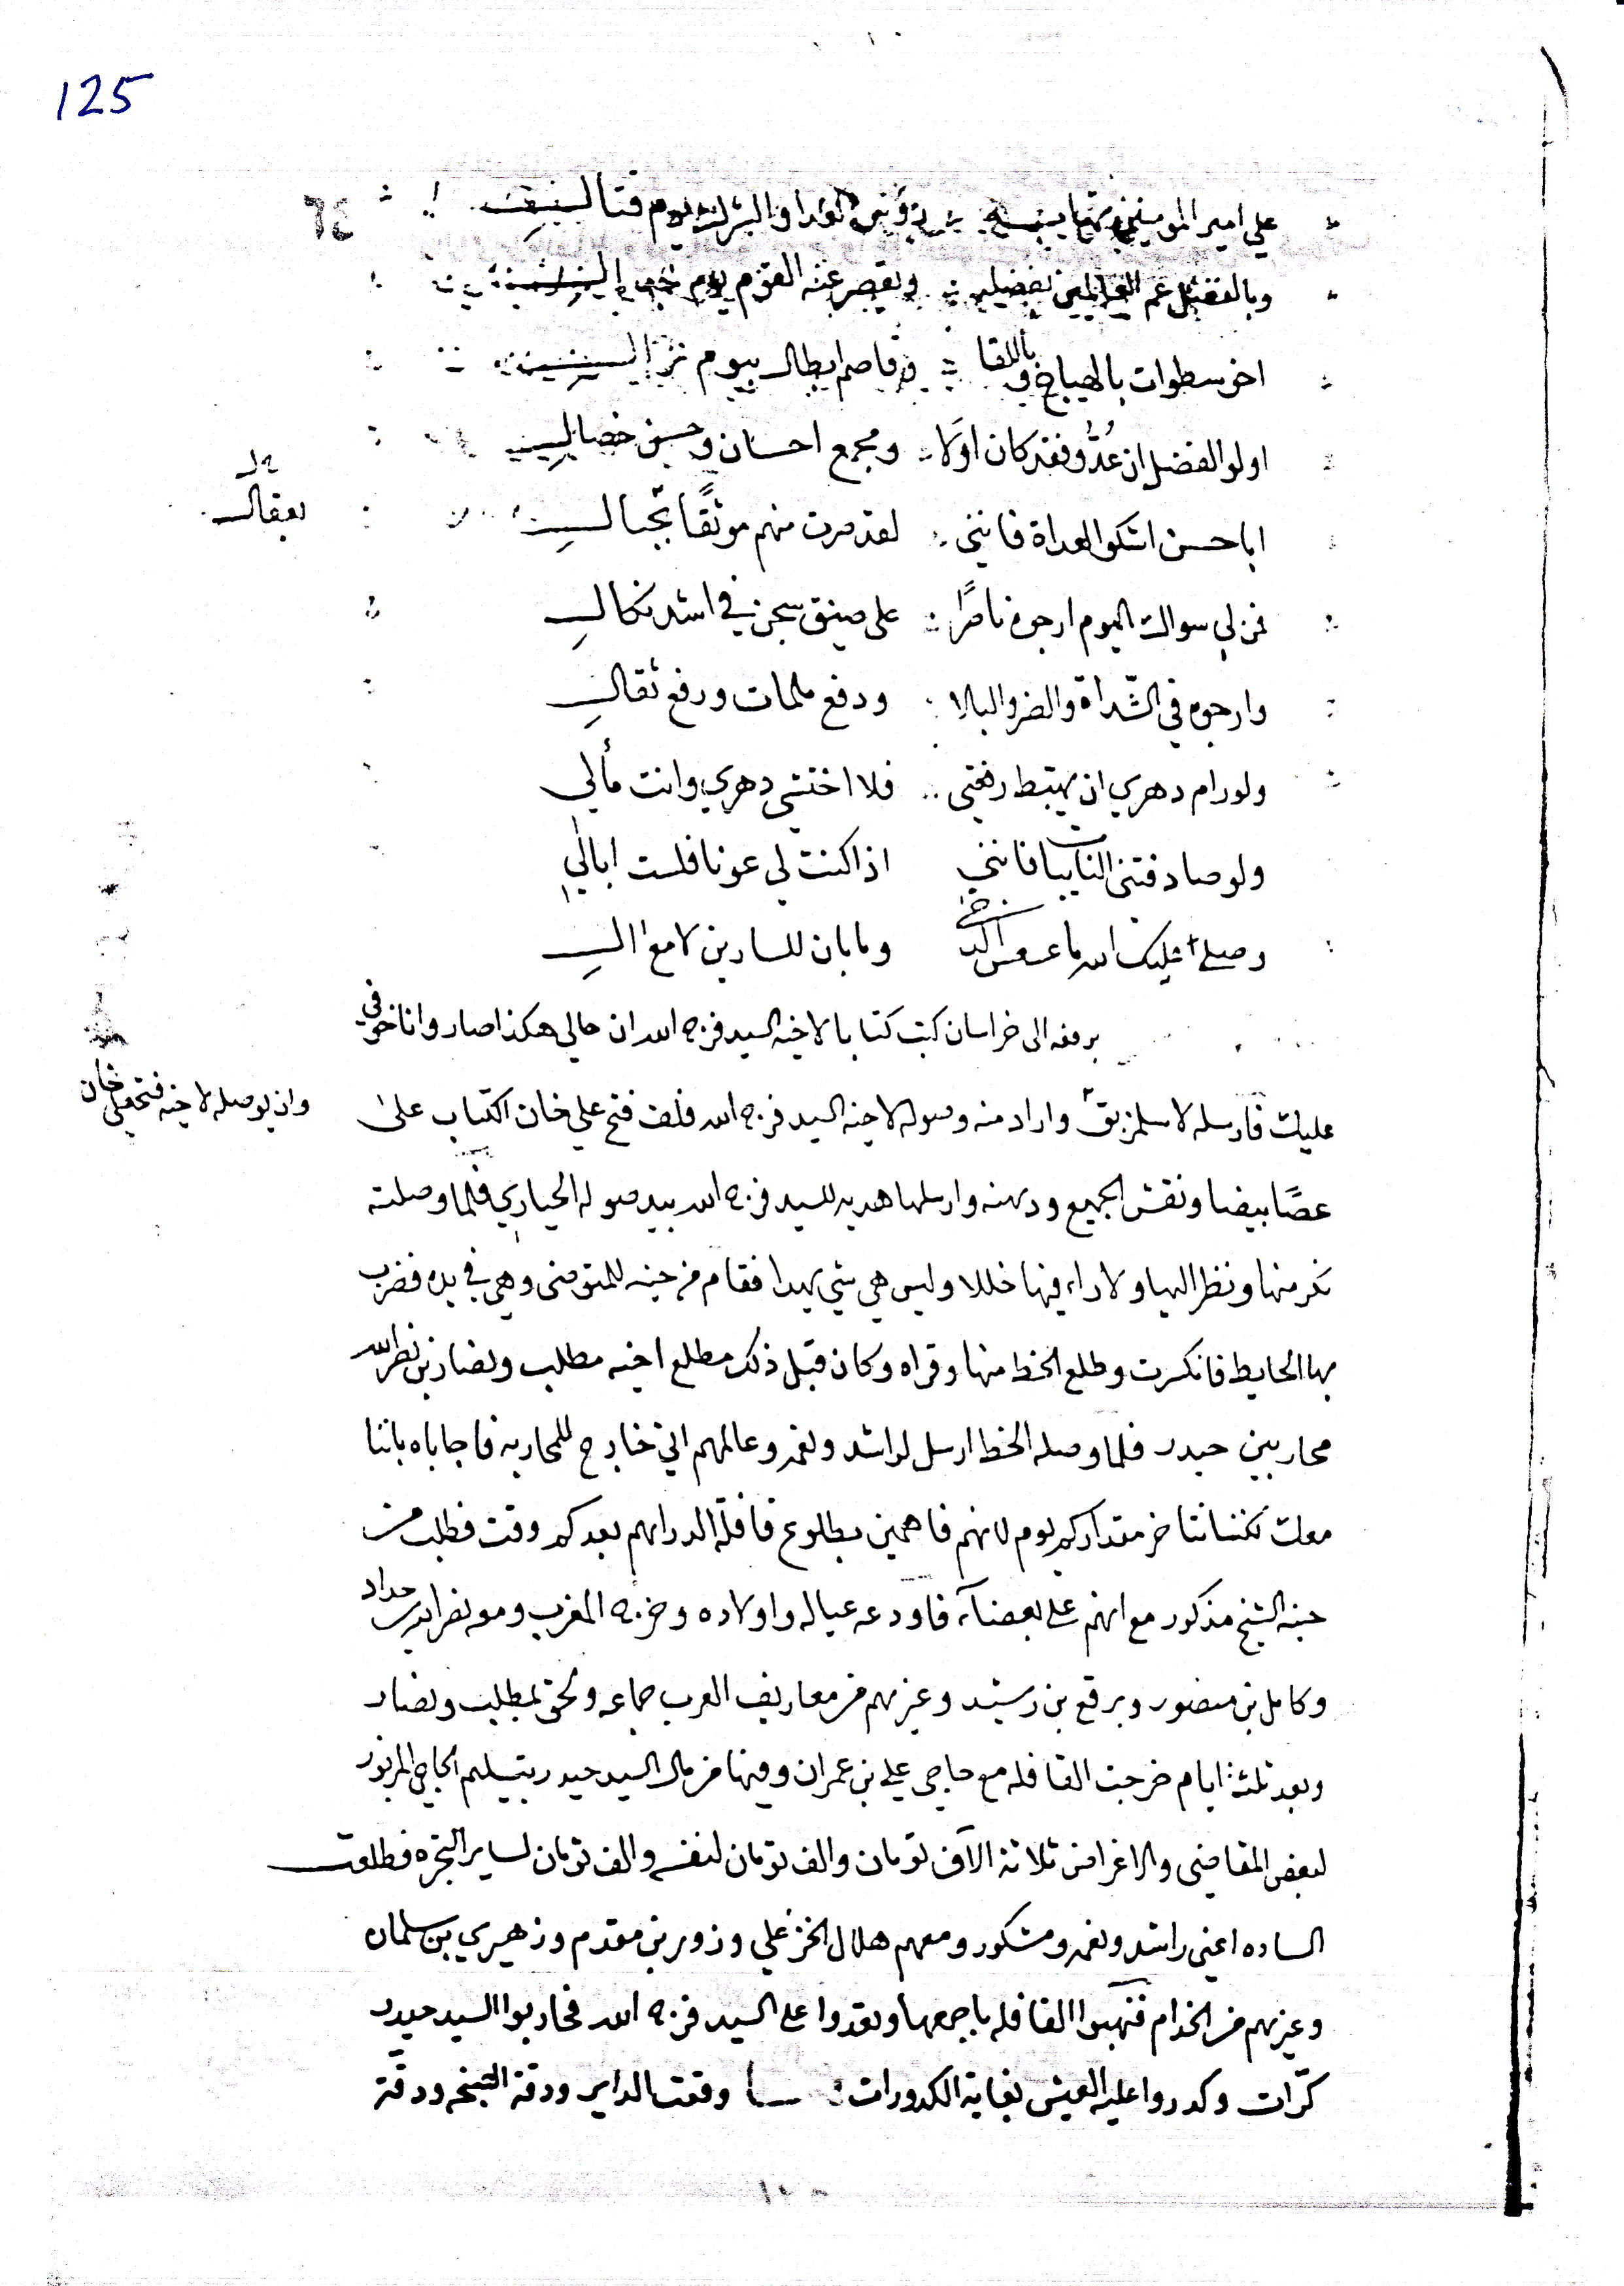 125
٦٤
علي امير المومنين العدا والشرك يوم قتال
وبالفضل عم العالمين بفضله ويقصر عنه القوم يوم
اخو سطوات بالهياج وباللقا وقاصم ابطال بيوم نزال
اولو الفضل ان عُدُّو فقد كان اولا ومجمع احسان وحسن خصال
ابا حسن اشكو العداة فانني لقد صرت منهم موثقًا بحبال
بعقال
فمن لي سواك اليوم ارجوه ناصرًا على ضيق سجن في اشد نكال
وارجوه في الشداة والضر والبلا ودفع ملمات ورفع ثقال
ولو رام دهري ان يهتبط رفعتي فلا اختشى دهري وانت مألي
ولو صادفتني النايبات فانني اذا كنت لي عونا فلست ابالي
وصلى عليك الله ما عسعس الدجى وما بان للسارين لامع ال
برفعه الى خراسان كتب كتابا لاخيه السيد فرج الله ان حالي هكذا صار وانا خوفي
عليك فارسله لاسلمز بق واراد منه وصوله لاخيه السيد فرج الله فلف فتح علي خان الكتاب على
وان يوصله لاخيه فتحعلي خان
عصًا بيضا ونقش الجميع ودهنه وارسلها هديه للسيد فرج الله بيد صوله الحياري فلما وصلته
نكر منها ونظر اليها ولا راء فيها خللا وليس هي شي يهدا فقام من حينه للمتوضى وهي في يده فضرب
بها الحايط فانكسرت وطلع الخط منها وقراه وكان قبل ذلك مطلع اخيه مطلب ونصار بن نصر الله
محاربين حيدر فلما وصله الخط ارسل لراشد ونعمه وعالمهم اني خارج للمحاربه فاجاباه باننا
معك لكننا نتاخر مقدار كم يوم لانهم فاهمين بطلوع قافلة الدراهم بعد كم وقت فطلب من
حينه الشيخ مذكور مع انهم على بعضاء فاودعه عياله واولاده وخرج المغرب ومعه نصرالله بن حداد
وكامل بن منصور وبرقع بن رشيد وغيرهم من معاريف العرب جماعه ولحق بمطلب ونصار
وبعد ثلثة ايام خرجت القافله مع حاجي علي بن عمران وفيها من مال السيد حيدر بتسليم الحاجي المزبور
لبعض المقاضي والاغراض ثلاثة الآف تومان والف تومان لنفسه والف تومان لساير التجره فطلعت
الساده اعني راشد ونعمه ومشكور ومعهم هلال الخزعلي وزوير بن مقدم وزهيري بن سلمان
وغيرهم من الخدام فنهبوا القافله باجمعها وتعدوا على السيد فرج الله فحاربوا السيد حيدر
كرّات وكدروا عليه العيش بغاية الكدورات وقعت الداير ودقة الشيخه ودقة
١٢٥